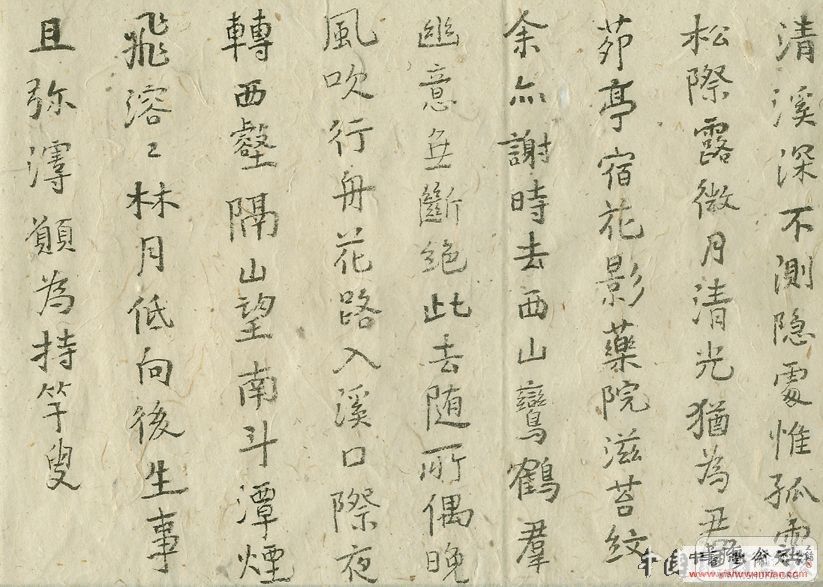 清溪深不測隐處惟孤雲
松際露微月清光猶為君
茆亭宿花影藥院滋苔紋
余亦謝時去西山鸞鶴羣
幽意無斷絕此去随所偶晚
風吹行舟花路入溪口際夜
轉西壑隔山望南斗潭煙
飛溶〻林月低向後生事
且弥漫願為持竿叟
www.shuxiack.com